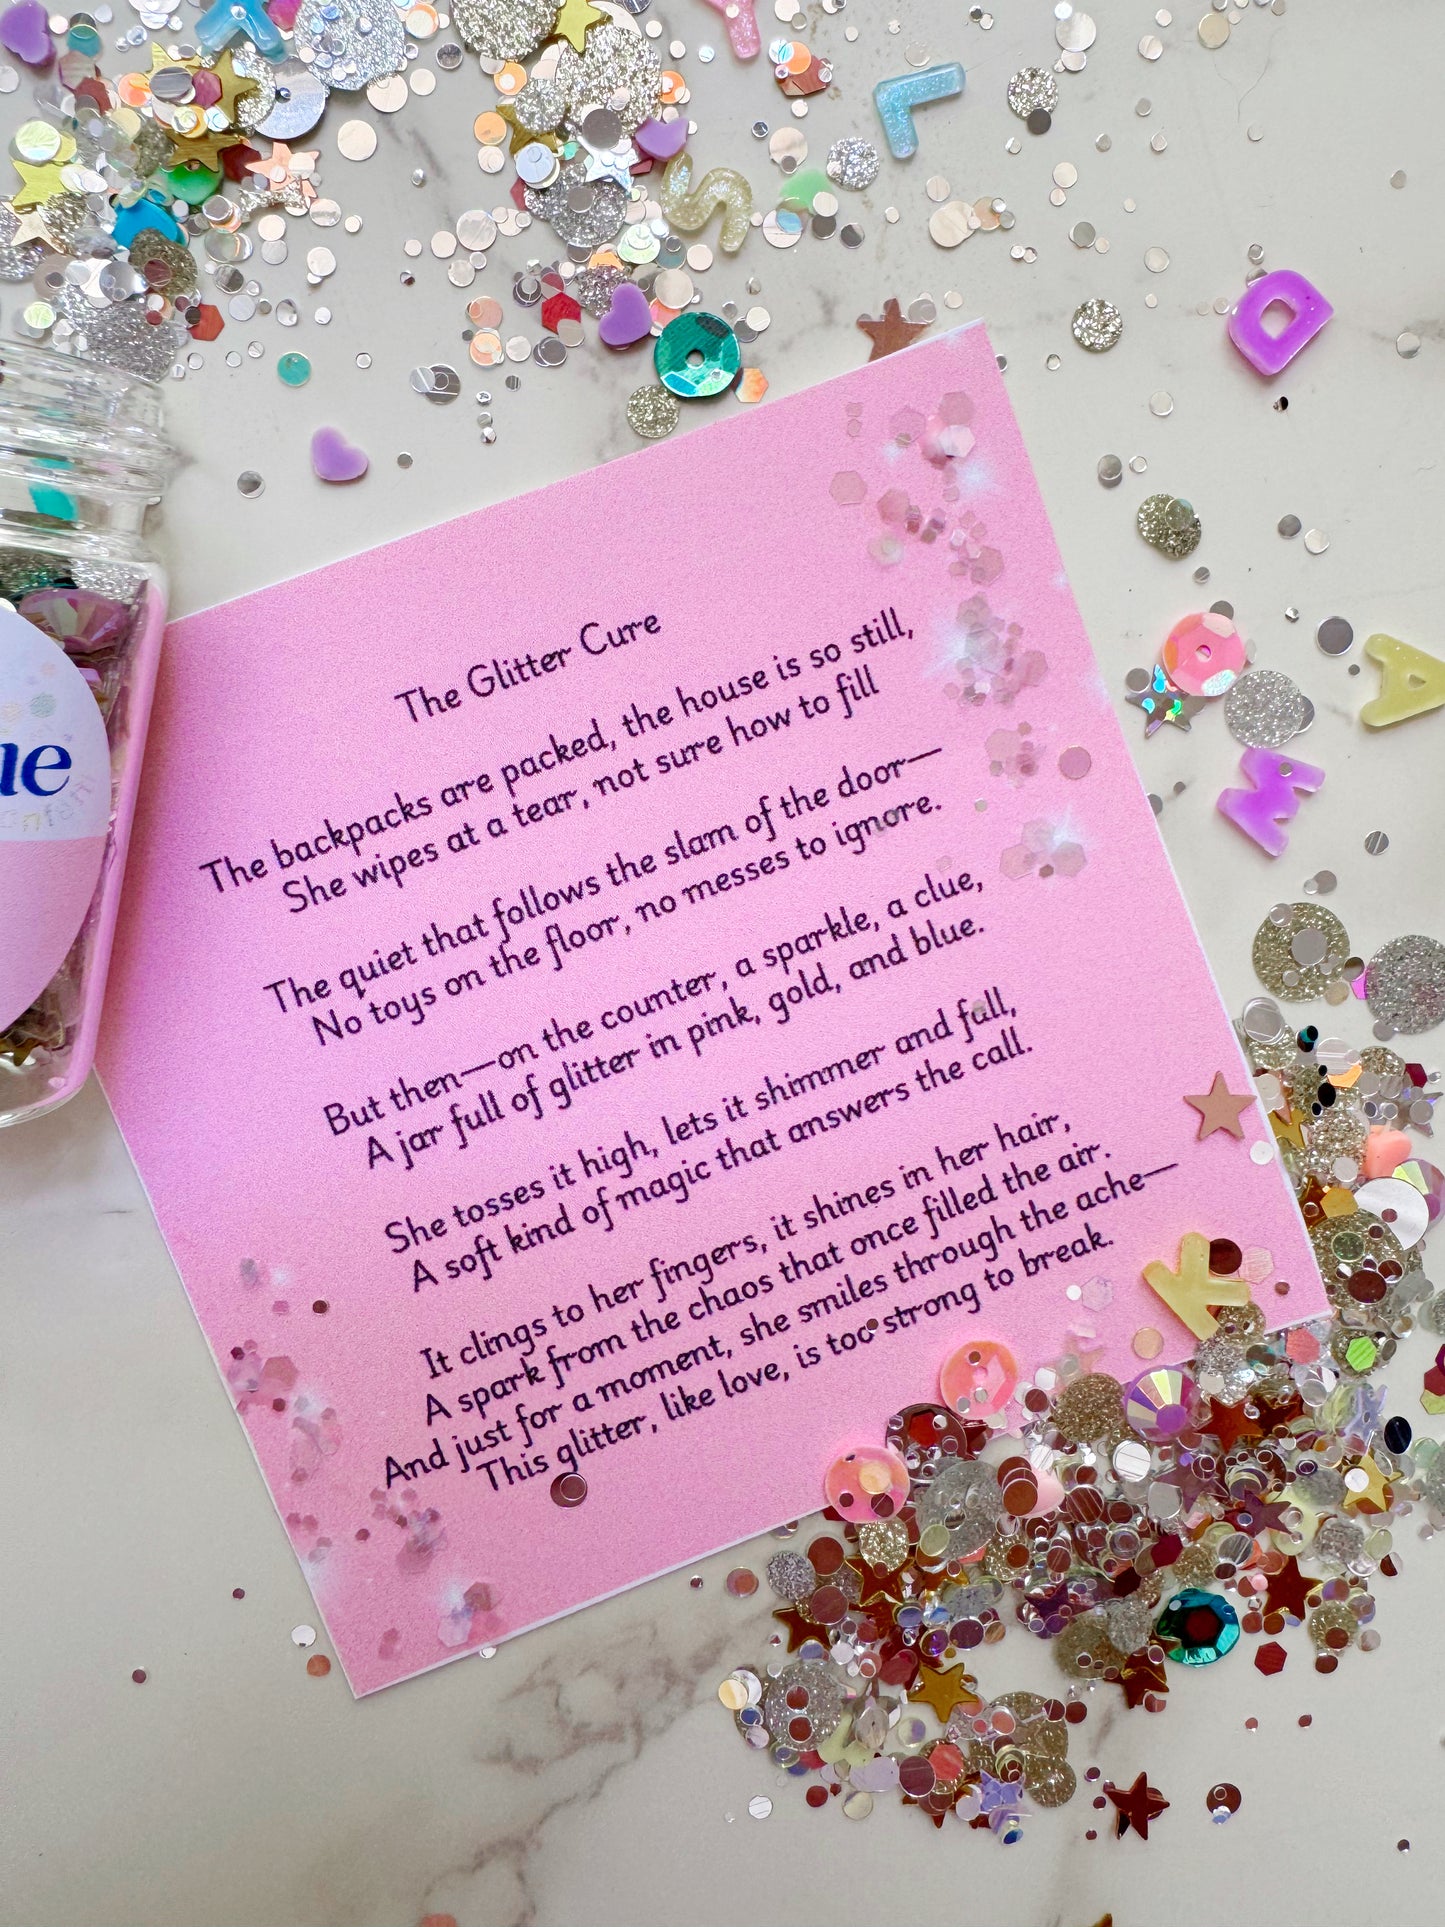 The Glitter Cure
The backpacks are packed, the house is so still,
She wipes at a tear, not sure how to fill
The quiet that follows the slam of the door—
No toys on the floor, no messes to ignore.
But then—on the counter, a sparkle, a clue,
A jar full of glitter in pink, gold, and blue.
She tosses it high, lets it shimmer and fall,
A soft kind of magic that answers the call.
It clings to her fingers, it shines in her hair,
A spark from the chaos that once filled the air.
And just for a moment, she smiles through the ache—
This glitter, like love, is too strong to break.
ue
L
D
A
M
K